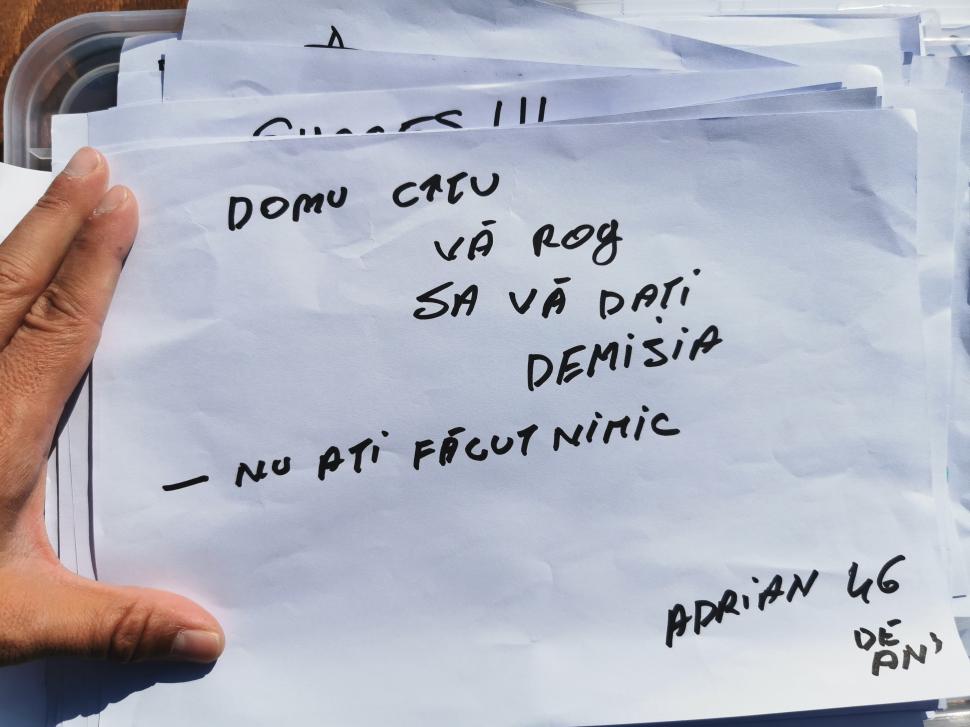 !!!
DOMU CÎȚU
VĂ ROG
SA VĂ DAȚI
DEMISIA
— NU AȚI FĂCUT NIMIC
ADRIAN 46
DE
ANI